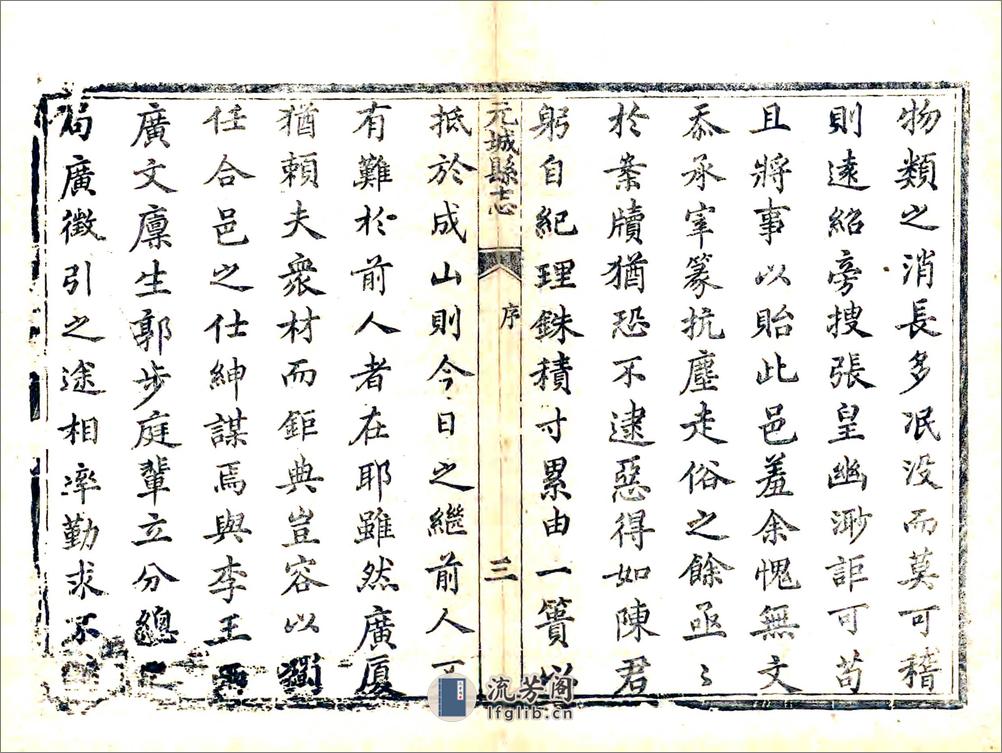 物類之消長多泯没而莫可稽
則遠紹旁搜張皇幽渺詎可苟
且將事以貽此邑羞余愧無文
忝承宰篆抗塵走俗之餘亟〻
於案牘猶恐不逮惡得如陳君
躬自紀理銖積寸累由一簣以
元城縣志
序
三
抵於成山則今日之繼前人
有難於前人者在耶雖然廣厦
猶賴夫衆材而鉅典豈容以獨
任合邑之仕紳謀焉與李王兩
廣文廪生郭步庭輩立分總之
局廣徵引之途相率勤求不
流芳阁
lfglib.cn